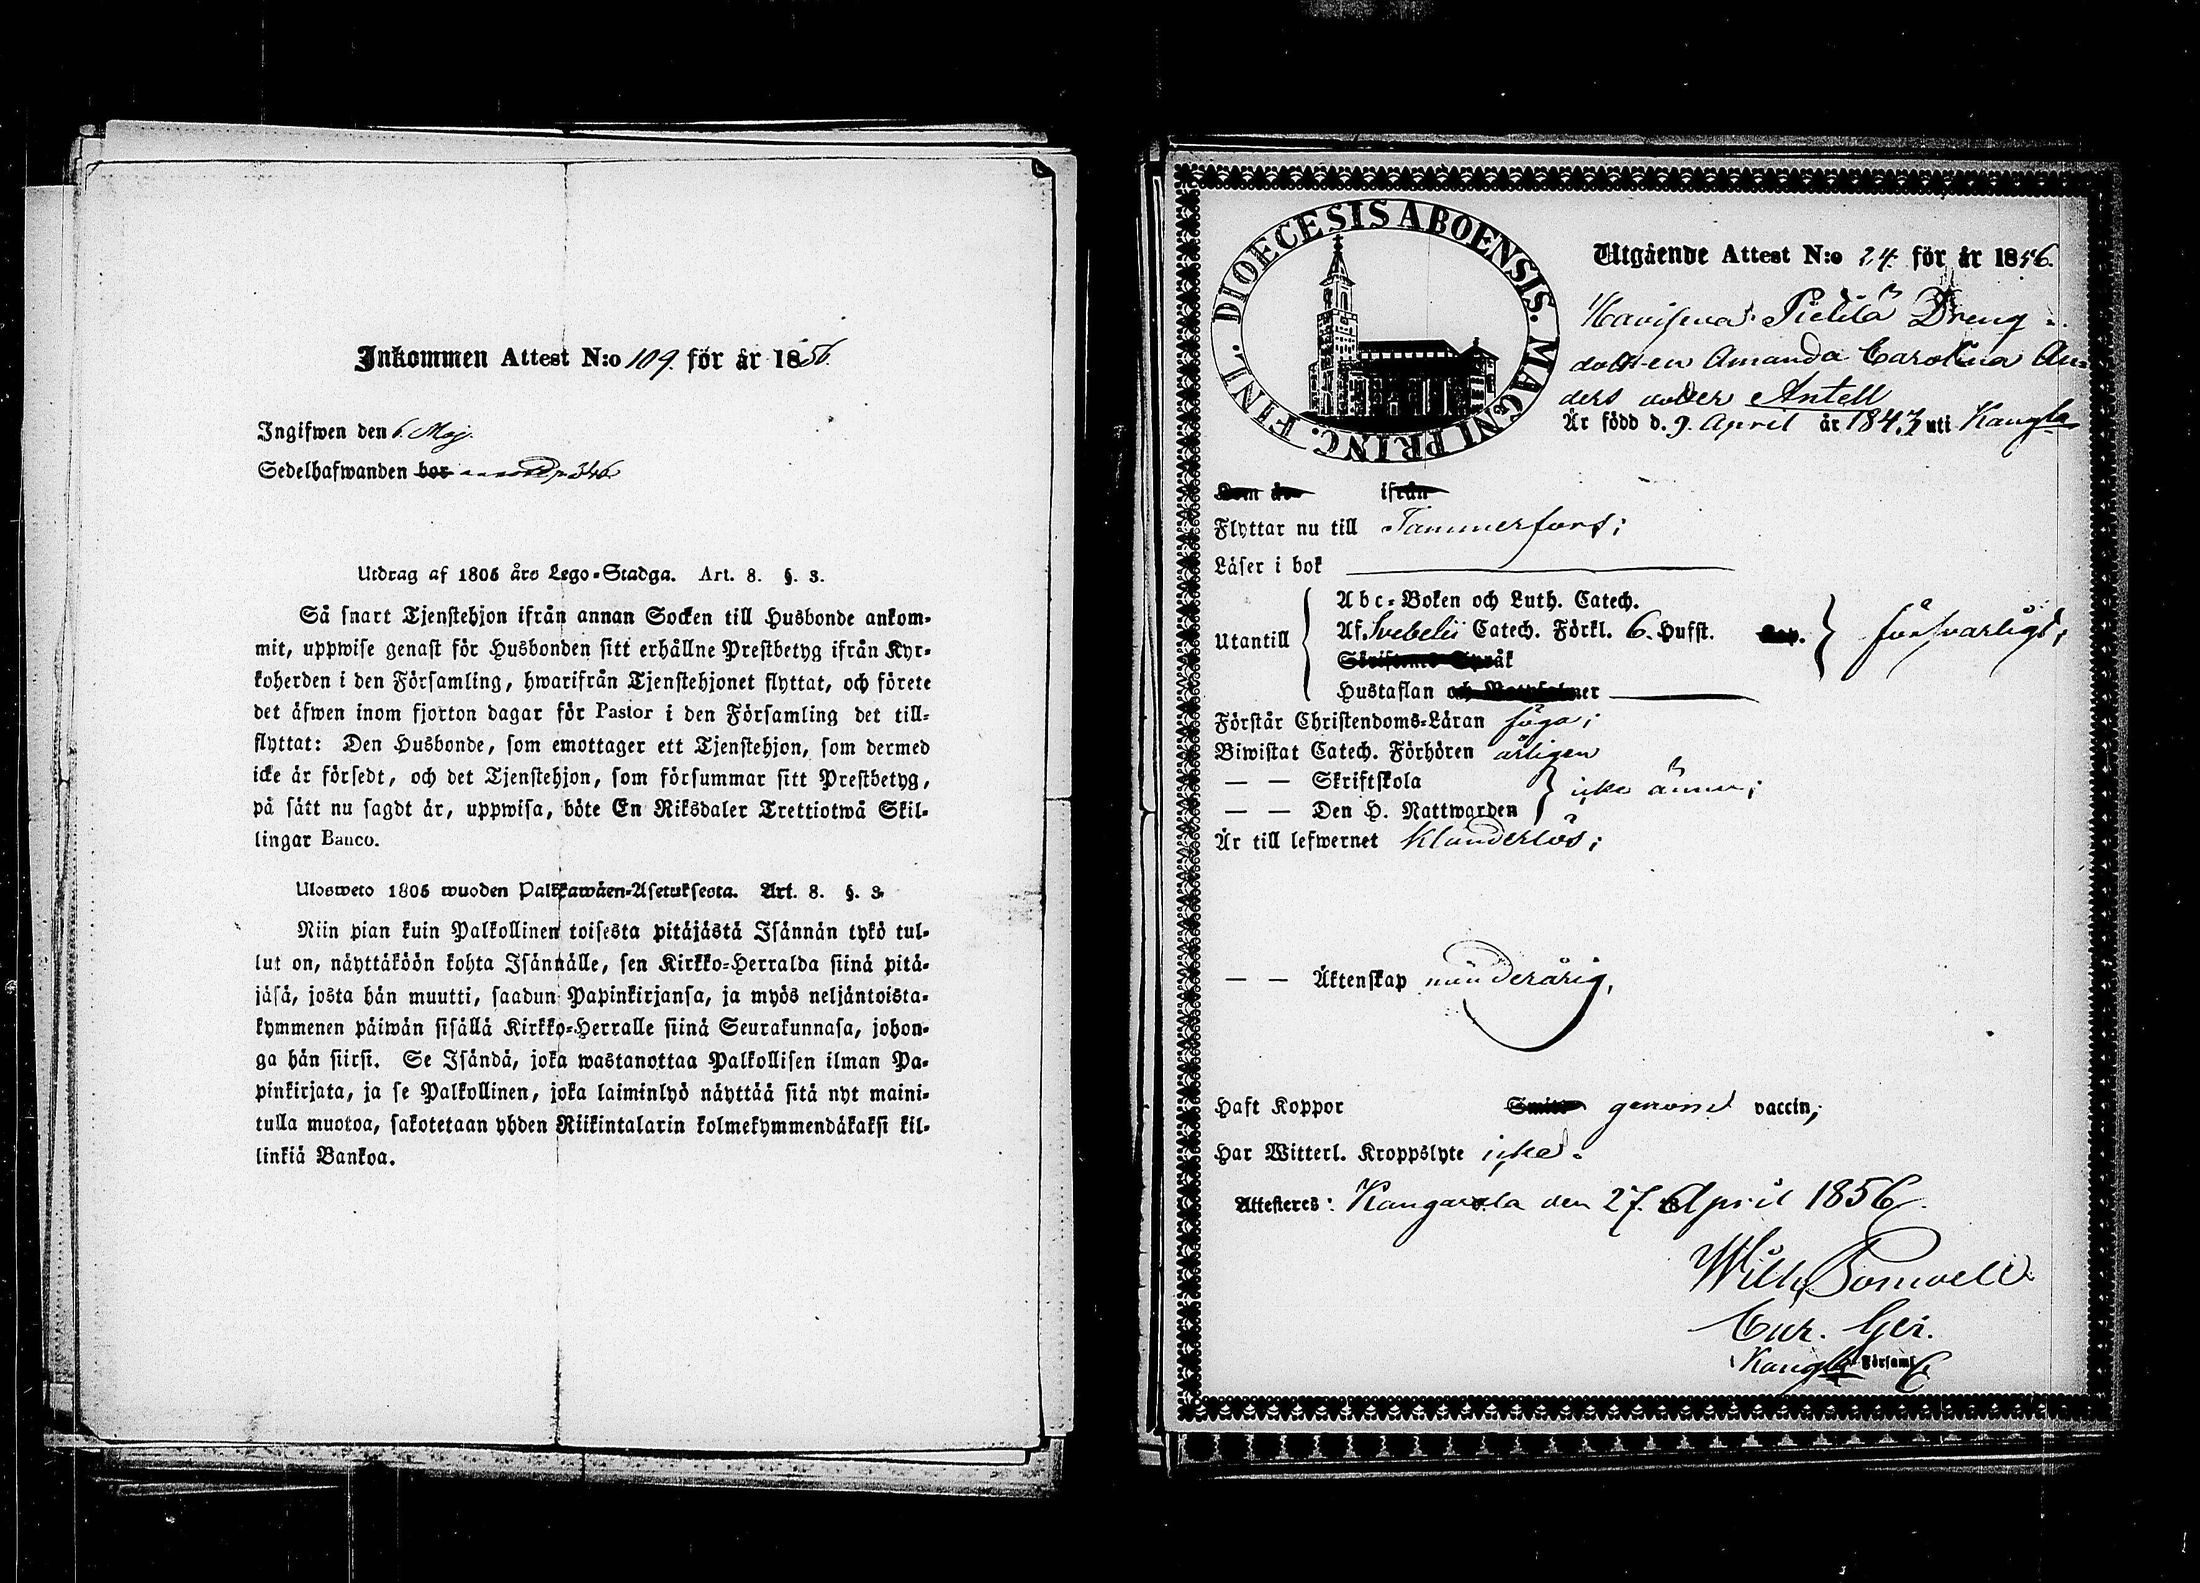 Inkommen Attest N:o 109. för år 1856.
Ingifwen den 6. Maj.
Sedelhafwanden bor p. 346
Utdrag af 1805 års Lego-Stadga. Art. 8. §. 3.
Så snart Tjenstehjon ifrån annan Socken till Husbonde ankom-
mit, uppwise genast för Husbonden sitt erhållne Prestbetyg ifrån Kyr-
koherden i den Församling, hwarifrån Tjenstehjonet flyttat, och förete
det äfwen inom fjorton dagar för Pastor i den Församling det till-
flyttat: Den Husbonde, som emottager ett Tjenstehjon, som dermed
icke är försedt, och det Tjenstehjon, som försummar sitt Prestbetyg,
på sätt nu sagdt är, uppwisa, böte En Riksdaler Trettiotwå Skil-
lingar Banco.
Ulosweto 1805 wuoden Palkkawäen-Asetuksesta. Art. 8. §. 3.
Niin pian kuin Palkollinen toisesta pitäjästä Isännän tykö tul-
lut on, näyttäköön kohta Isännälle, sen Kirkko-Herralda siinä pitä-
jäsä, josta hän muutti, saadun Papinkirjansa, ja myös neljäntoista-
kymmenen päiwän sisällä Kirkko-Herralle siinä Seurakunnasa, johon-
ga hän siirsi. Se Isändä, joka wastanottaa Palkollisen ilman Pa-
pinkirjata, ja se Palkollinen, joka laiminlyö näyttää sitä nyt maini-
tulla muotoa, sakotetaan yhden Riikintalarin kolmekymmendäkaksi kil-
linkiä Bankoa.
DIOECESIS ABOENSIS. MAGNI PRINC. FINL.
Utgående Attest N:o 24. för år 1856.
Pietilä Dreng
dottren Amanda Carolina An-
ders dotter Antell
Är född d. 9. April år 1843 uti Kangla
Kom år ifrån
Flyttar nu till Tammerfors;
Läser i bok
Utantill
Abc-Boken och Luth. Catech.
Af Svebelii Catech. Förkl. 6. Hufst. Cap.
Skriftenes Språk
Hustaflan och Botpsalmer
försvarligt;
Förstår Christendoms-Läran föga;
Biwistat Catech. Förhören årligen
— — Skriftskola
— — Den H. Nattwarden
icke ännu;
Är till lefwernet klanderlös;
— — Äktenskap minderårig,
Haft Koppor Smitt genom vaccin;
Har Witterl. Kroppslyte icke.
Attesteres: Kangasala den 27. April 1856.
Wilh.
Kangla Församl.